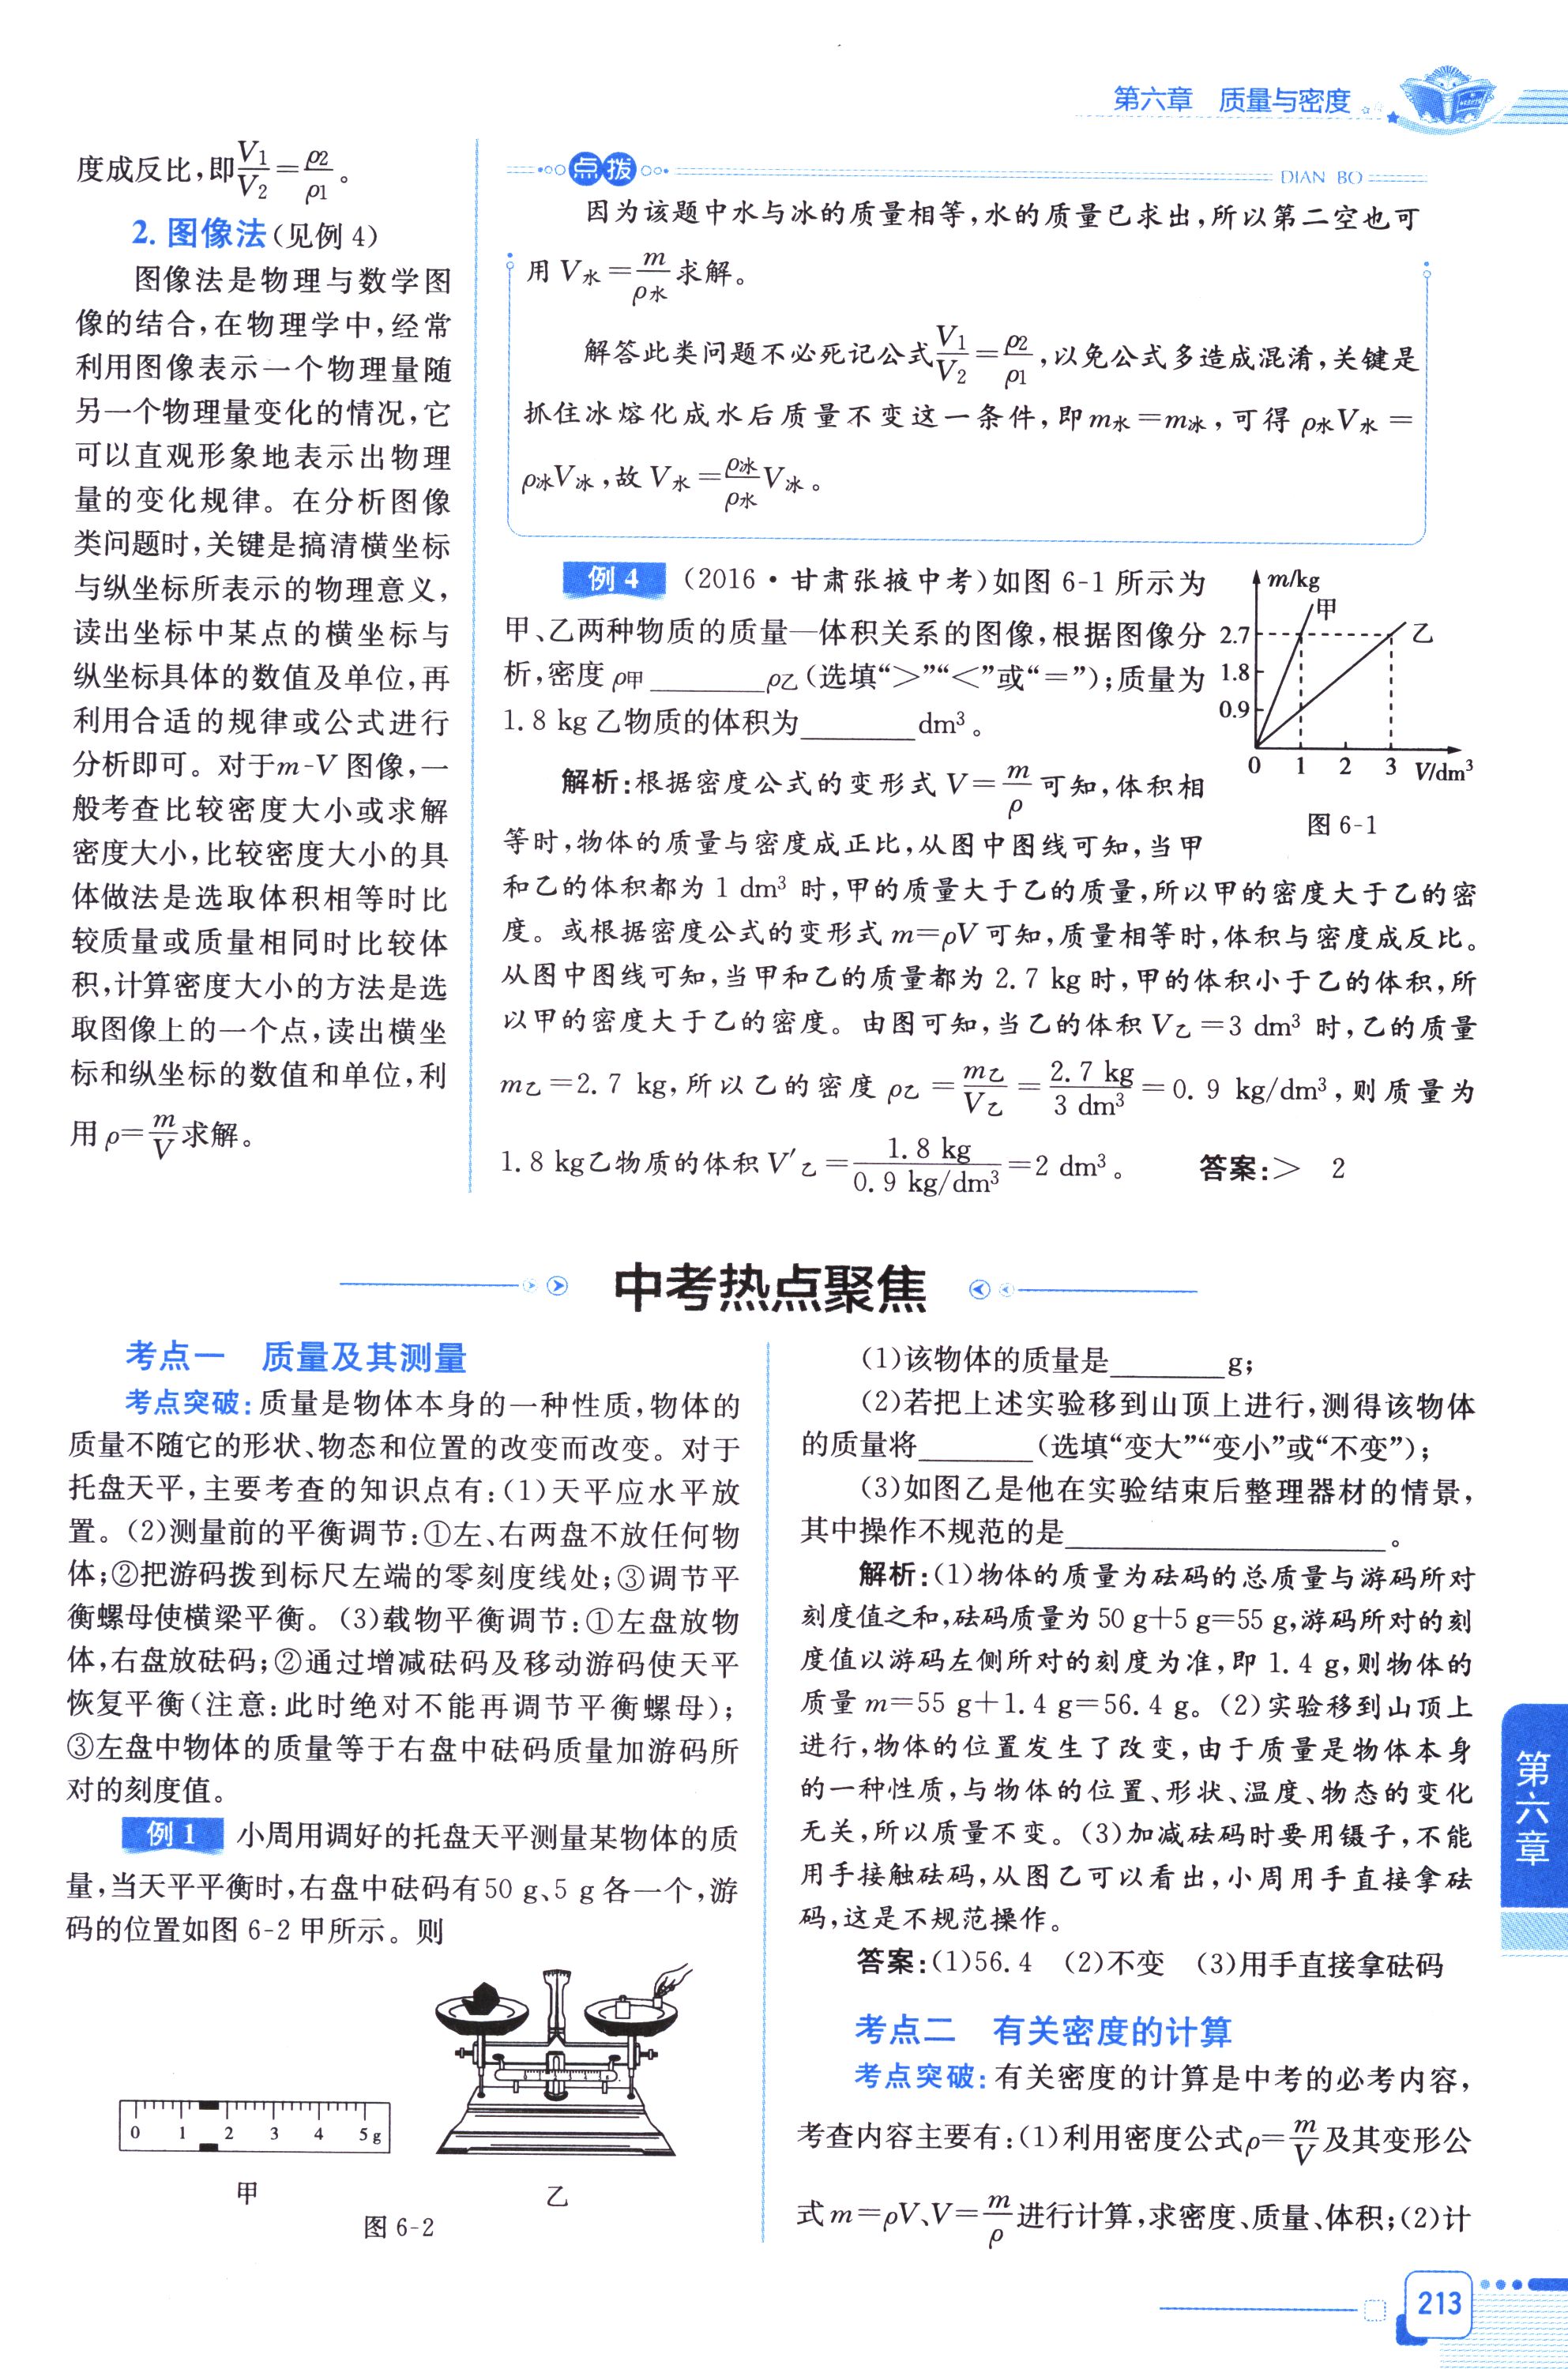 第六章 质量与密度
度成反比,即V₁/V₂=ρ₂/ρ₁。
2. 图像法(见例 4)
图像法是物理与数学图
像的结合,在物理学中,经常
利用图像表示一个物理量随
另一个物理量变化的情况,它
可以直观形象地表示出物理
量的变化规律。在分析图像
类问题时,关键是搞清横坐标
与纵坐标所表示的物理意义,
读出坐标中某点的横坐标与
纵坐标具体的数值及单位,再
利用合适的规律或公式进行
分析即可。对于m-V 图像,一
般考查比较密度大小或求解
密度大小,比较密度大小的具
体做法是选取体积相等时比
较质量或质量相同时比较体
积,计算密度大小的方法是选
取图像上的一个点,读出横坐
标和纵坐标的数值和单位,利
用 ρ=m/V求解。
点拨
DIAN BO
因为该题中水与冰的质量相等,水的质量已求出,所以第二空也可
用 V水=m/ρ水 求解。
解答此类问题不必死记公式V₁/V₂=ρ₂/ρ₁,以免公式多造成混淆,关键是
抓住冰熔化成水后质量不变这一条件,即 m水=m冰,可得 ρ水V水=
ρ冰V冰,故 V水=ρ冰/ρ水 V冰。
例 4 (2016·甘肃张掖中考)如图 6-1 所示为
甲、乙两种物质的质量—体积关系的图像,根据图像分
析,密度 ρ甲________ρ乙(选填“>”“<”或“=”);质量为
1.8 kg 乙物质的体积为________dm³。
m/kg
甲
乙
2.7
1.8
0.9
0 1 2 3 V/dm³
图 6-1
解析:根据密度公式的变形式 V=m/ρ 可知,体积相
等时,物体的质量与密度成正比,从图中图线可知,当甲
和乙的体积都为 1 dm³ 时,甲的质量大于乙的质量,所以甲的密度大于乙的密
度。或根据密度公式的变形式 m=ρV 可知,质量相等时,体积与密度成反比。
从图中图线可知,当甲和乙的质量都为 2.7 kg 时,甲的体积小于乙的体积,所
以甲的密度大于乙的密度。由图可知,当乙的体积 V乙=3 dm³ 时,乙的质量
m乙=2.7 kg,所以乙的密度 ρ乙=m乙/V乙=2.7 kg/3 dm³=0.9 kg/dm³,则质量为
1.8 kg乙物质的体积 V′乙=1.8 kg/0.9 kg/dm³=2 dm³。 答案:> 2
中考热点聚焦
考点一 质量及其测量
考点突破:质量是物体本身的一种性质,物体的
质量不随它的形状、物态和位置的改变而改变。对于
托盘天平,主要考查的知识点有:(1)天平应水平放
置。(2)测量前的平衡调节:①左、右两盘不放任何物
体;②把游码拨到标尺左端的零刻度线处;③调节平
衡螺母使横梁平衡。(3)载物平衡调节:①左盘放物
体,右盘放砝码;②通过增减砝码及移动游码使天平
恢复平衡(注意:此时绝对不能再调节平衡螺母);
③左盘中物体的质量等于右盘中砝码质量加游码所
对的刻度值。
例 1 小周用调好的托盘天平测量某物体的质
量,当天平平衡时,右盘中砝码有50 g、5 g 各一个,游
码的位置如图 6-2 甲所示。则
0 1 2 3 4 5 g
甲
乙
图 6-2
(1)该物体的质量是________g;
(2)若把上述实验移到山顶上进行,测得该物体
的质量将________(选填“变大”“变小”或“不变”);
(3)如图乙是他在实验结束后整理器材的情景,
其中操作不规范的是________________________。
解析:(1)物体的质量为砝码的总质量与游码所对
刻度值之和,砝码质量为 50 g+5 g=55 g,游码所对的刻
度值以游码左侧所对的刻度为准,即 1.4 g,则物体的
质量 m=55 g+1.4 g=56.4 g。(2)实验移到山顶上
进行,物体的位置发生了改变,由于质量是物体本身
的一种性质,与物体的位置、形状、温度、物态的变化
无关,所以质量不变。(3)加减砝码时要用镊子,不能
用手接触砝码,从图乙可以看出,小周用手直接拿砝
码,这是不规范操作。
答案:(1)56.4 (2)不变 (3)用手直接拿砝码
考点二 有关密度的计算
考点突破:有关密度的计算是中考的必考内容,
考查内容主要有:(1)利用密度公式ρ=m/V及其变形公
式 m=ρV、V=m/ρ进行计算,求密度、质量、体积;(2)计
第六章
213